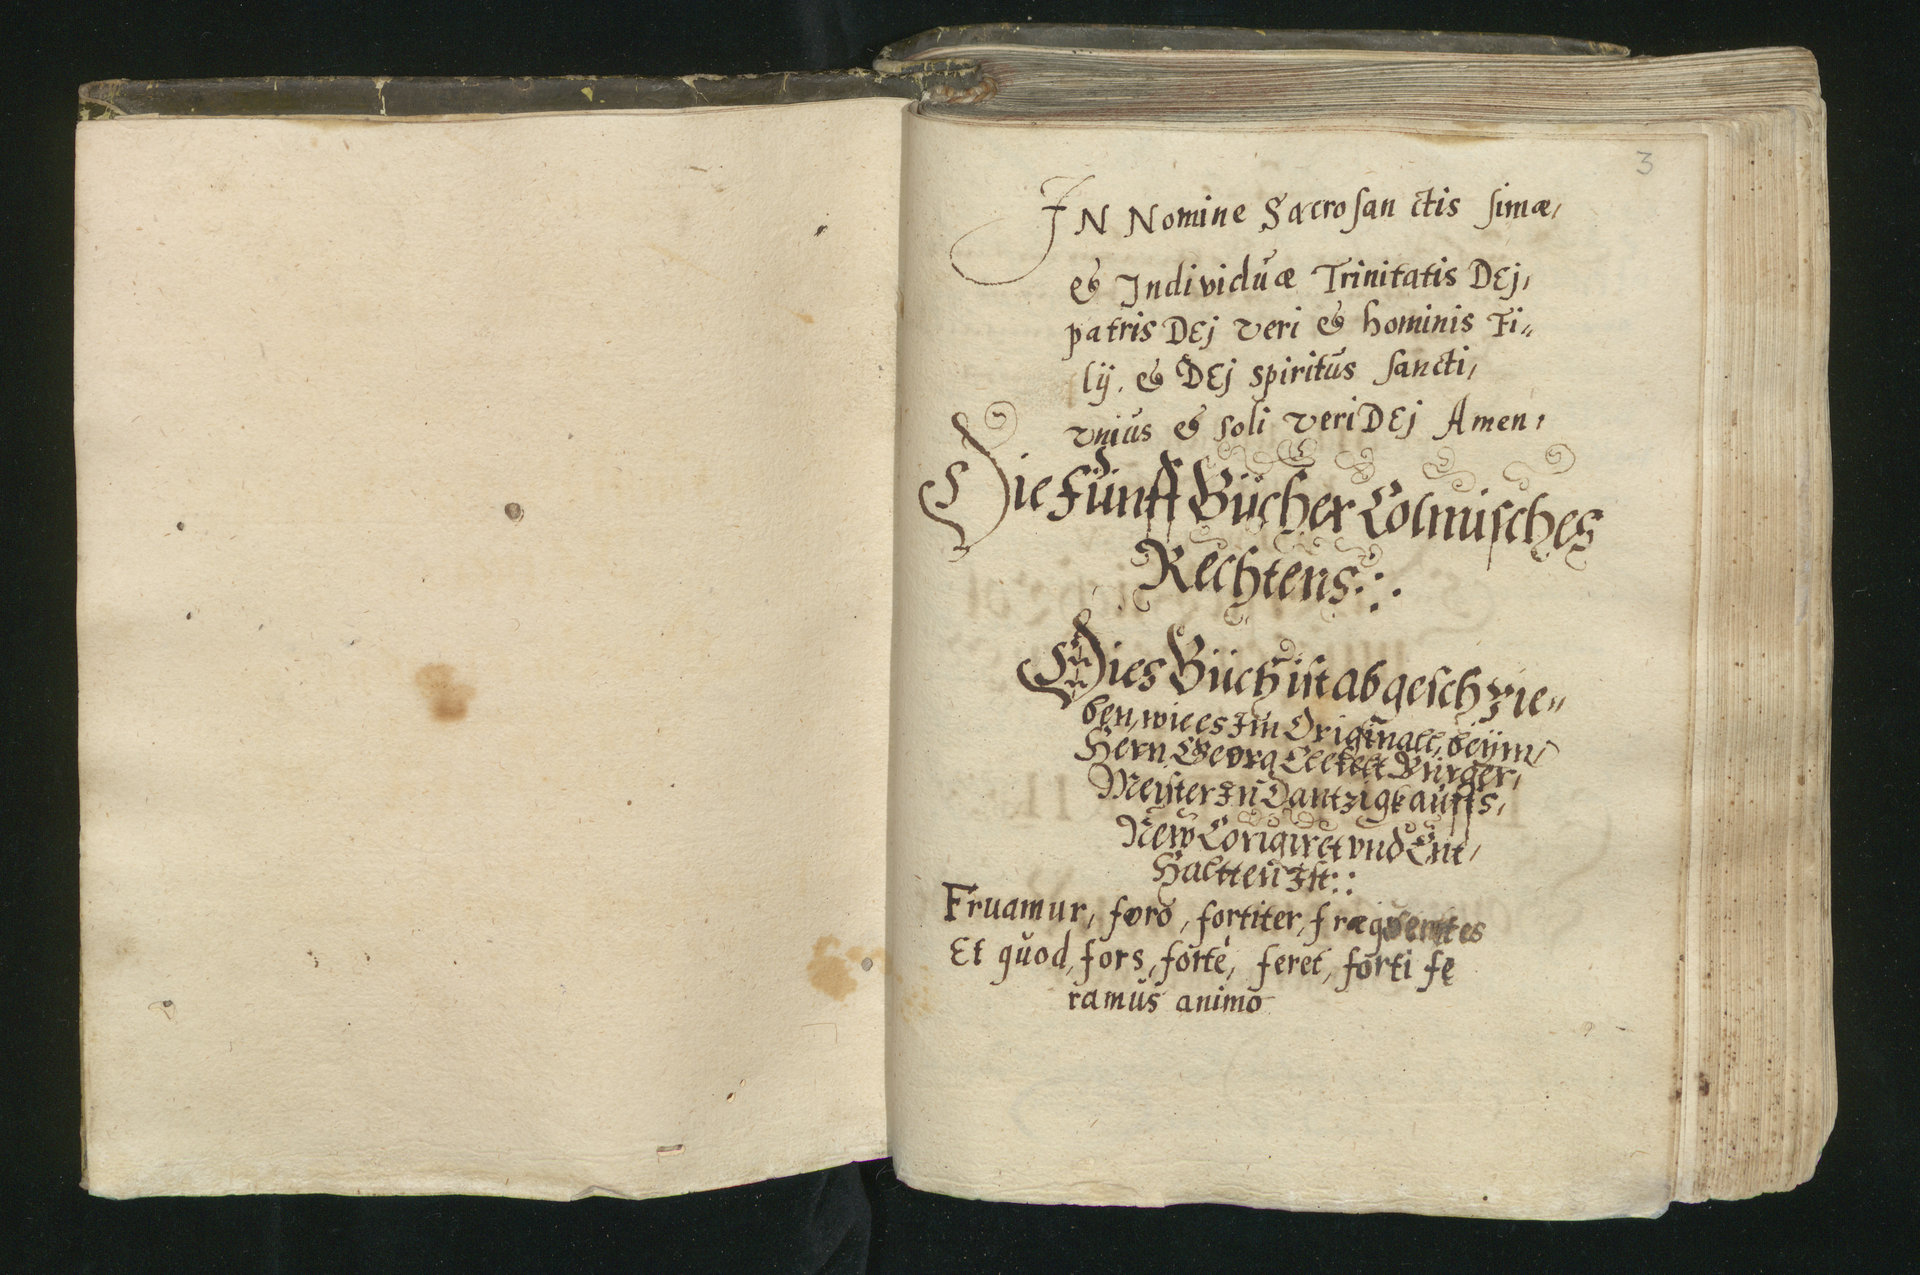 3
IN Nomine Sacrosan ctis simæ,
& Individuæ Trinitatis DEj,
patris DEj veri & hominis Fi„
lij. & DEj spiritus sancti,
vnius & soli veri DEj Amen,
Die Fünff Bücher Colmisches
Rechtens
Dies Büch ist abgeschrie„
ben, wie es Im Originall, beijm
Hern Georg Clefelt Bürger,
Meister In Dantzigk auffs,
New Corigiret vnd Ent,
Haltten Ist
Fruamur, foro, fortiter, fræqventes
Et quod, fors, forte, feret, forti fe
ramus animo